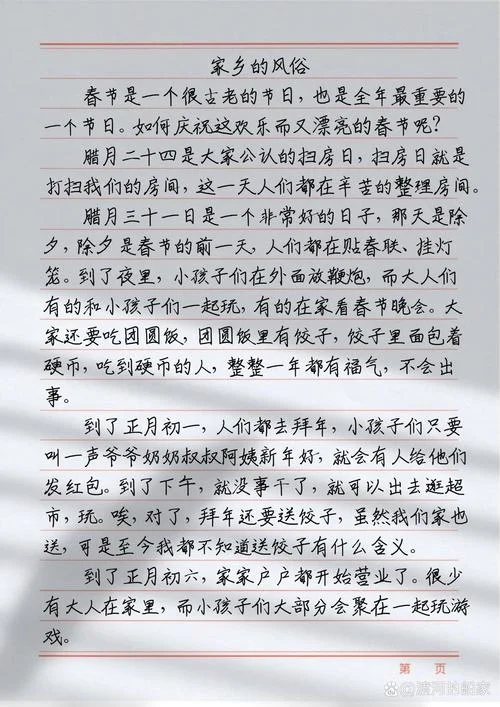 家乡的风俗
春节是一个很古老的节日，也是全年最重要的
一个节日。如何庆祝这欢乐而又漂亮的春节呢？
腊月二十四是大家公认的扫房日，扫房日就是
打扫我们的房间，这一天人们都在辛苦的整理房间。
腊月三十一日是一个非常好的日子，那天是除
夕，除夕是春节的前一天，人们都在贴春联、挂灯
笼。到了夜里，小孩子们在外面放鞭炮，而大人们
有的和小孩子们一起玩，有的在家看春节晚会。大
家还要吃团圆饭，团圆饭里有饺子，饺子里面包着
硬币，吃到硬币的人，整整一年都有福气，不会出
事。
到了正月初一，人们都去拜年，小孩子们只要
叫一声爷爷奶奶叔叔阿姨新年好，就会有人给他们
发红包。到了下午，就没事干了，就可以出去逛超
市，玩。唉，对了，拜年还要送饺子，虽然我们家也
送，可是至今我都不知道送饺子有什么含义。
到了正月初六，家家户户都开始营业了。很少
有大人在家里，而小孩子们大部分会聚在一起玩游
戏。
第 页
@渡河的船家